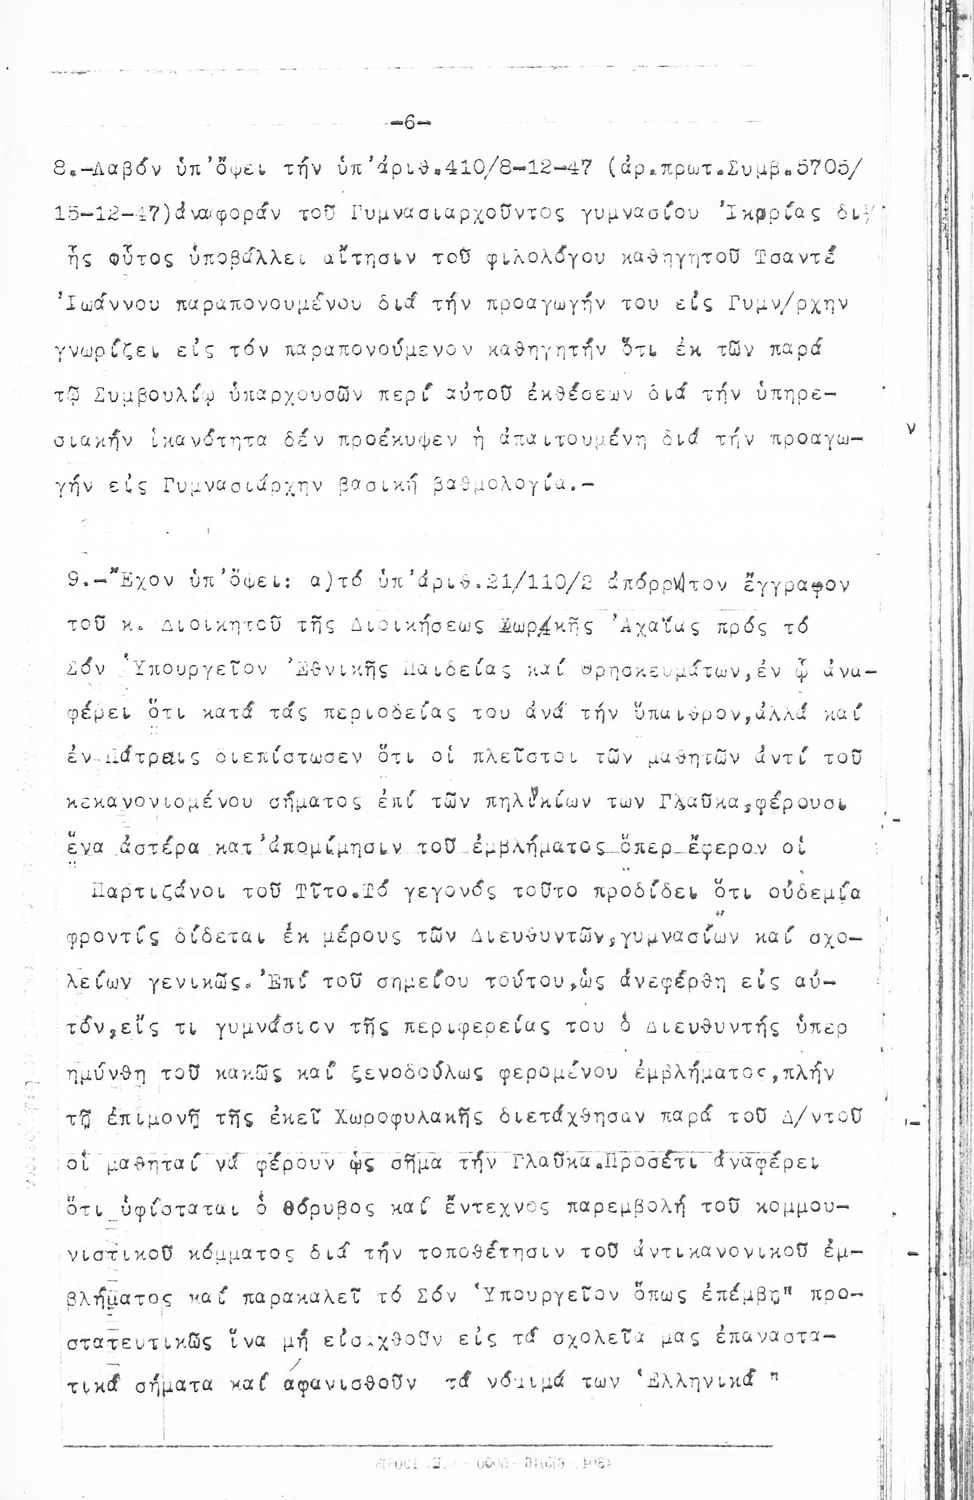 -6-
8.-Λαβόν ὑπ'ὄψει τήν ὑπ'ἀριθ.410/8-12-47 (ἀρ.πρωτ.Συμβ.5705/
15-12-47)ἀναφοράν τοῦ Γυμνασιαρχοῦντος γυμνασίου Ἰκαρίας δι'
ἧς οὗτος ὑποβάλλει αἴτησιν τοῦ φιλολόγου καθηγητοῦ Τσαντέ
Ἰωάννου παραπονουμένου διά τήν προαγωγήν του εἰς Γυμν/ρχην
γνωρίζει εἰς τόν παραπονούμενον καθηγητήν ὅτι ἐκ τῶν παρά
τῷ Συμβουλίῳ ὑπαρχουσῶν περί αὐτοῦ ἐκθέσεων διά τήν ὑπηρε-
σιακήν ἱκανότητα δέν προέκυψεν ἡ ἀπαιτουμένη διά τήν προαγω-
γήν εἰς Γυμνασιάρχην βασική βαθμολογία.-
9.-"Ἔχον ὑπ'ὄψει: α)τό ὑπ'ἀριθ.21/110/2 ἀπόρρητον ἔγγραφον
τοῦ κ. Διοικητοῦ τῆς Διοικήσεως Χωρ/κῆς Ἀχαΐας πρός τό
Σόν Ὑπουργεῖον Ἐθνικῆς Παιδείας καί Θρησκευμάτων,ἐν ᾧ ἀνα-
φέρει ὅτι κατά τάς περιοδείας του ἀνά τήν ὕπαιθρον,ἀλλά καί
ἐν Πάτραις διεπίστωσεν ὅτι οἱ πλεῖστοι τῶν μαθητῶν ἀντί τοῦ
κεκανονισμένου σήματος ἐπί τῶν πηλικίων των Γλαῦκα,φέρουσι
ἕνα ἀστέρα κατ'ἀπομίμησιν τοῦ ἐμβλήματος ὅπερ ἔφερον οἱ
Παρτιζάνοι τοῦ Τῖτο.Τό γεγονός τοῦτο προδίδει ὅτι οὐδεμία
φροντίς δίδεται ἐκ μέρους τῶν Διευθυντῶν,γυμνασίων καί σχο-
λείων γενικῶς.Ἐπί τοῦ σημείου τούτου,ὡς ἀνεφέρθη εἰς αὐ-
τόν,εἴς τι γυμνάσιον τῆς περιφερείας του ὁ Διευθυντής ὑπερ
ημύνθη τοῦ κακῶς καί ξενοδούλως φερομένου ἐμβλήματος,πλήν
τῇ ἐπιμονῇ τῆς ἐκεῖ Χωροφυλακῆς διετάχθησαν παρά τοῦ Δ/ντοῦ
οἱ μαθηταί νά φέρουν ὡς σῆμα τήν Γλαῦκα.Προσέτι ἀναφέρει
ὅτι ὑφίσταται ὁ θόρυβος καί ἔντεχνος παρεμβολή τοῦ κομμου-
νιστικοῦ κόμματος διά τήν τοποθέτησιν τοῦ ἀντικανονικοῦ ἐμ-
βλήματος καί παρακαλεῖ τό Σόν Ὑπουργεῖον ὅπως ἐπέμβῃ" προ-
στατευτικῶς ἵνα μή εἰσαχθοῦν εἰς τά σχολεῖα μας ἐπαναστα-
τικά σήματα καί ἀφανισθοῦν τά νόμιμά των Ἑλληνικά "